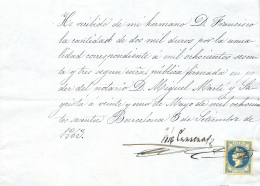 He recibido de mi hermano D. Francisco
la cantidad de dos mil duros por la anua-
lidad correspondiente a mil ochocientos sesen-
ta y tres segun escrit. publica firmada en po-
der del notario D. Miquel Marti y Sa-
grista a veinte y uno de Mayo de mil ochocien-
tos sesenta Barcelona 3 de Setiembre de
1863.